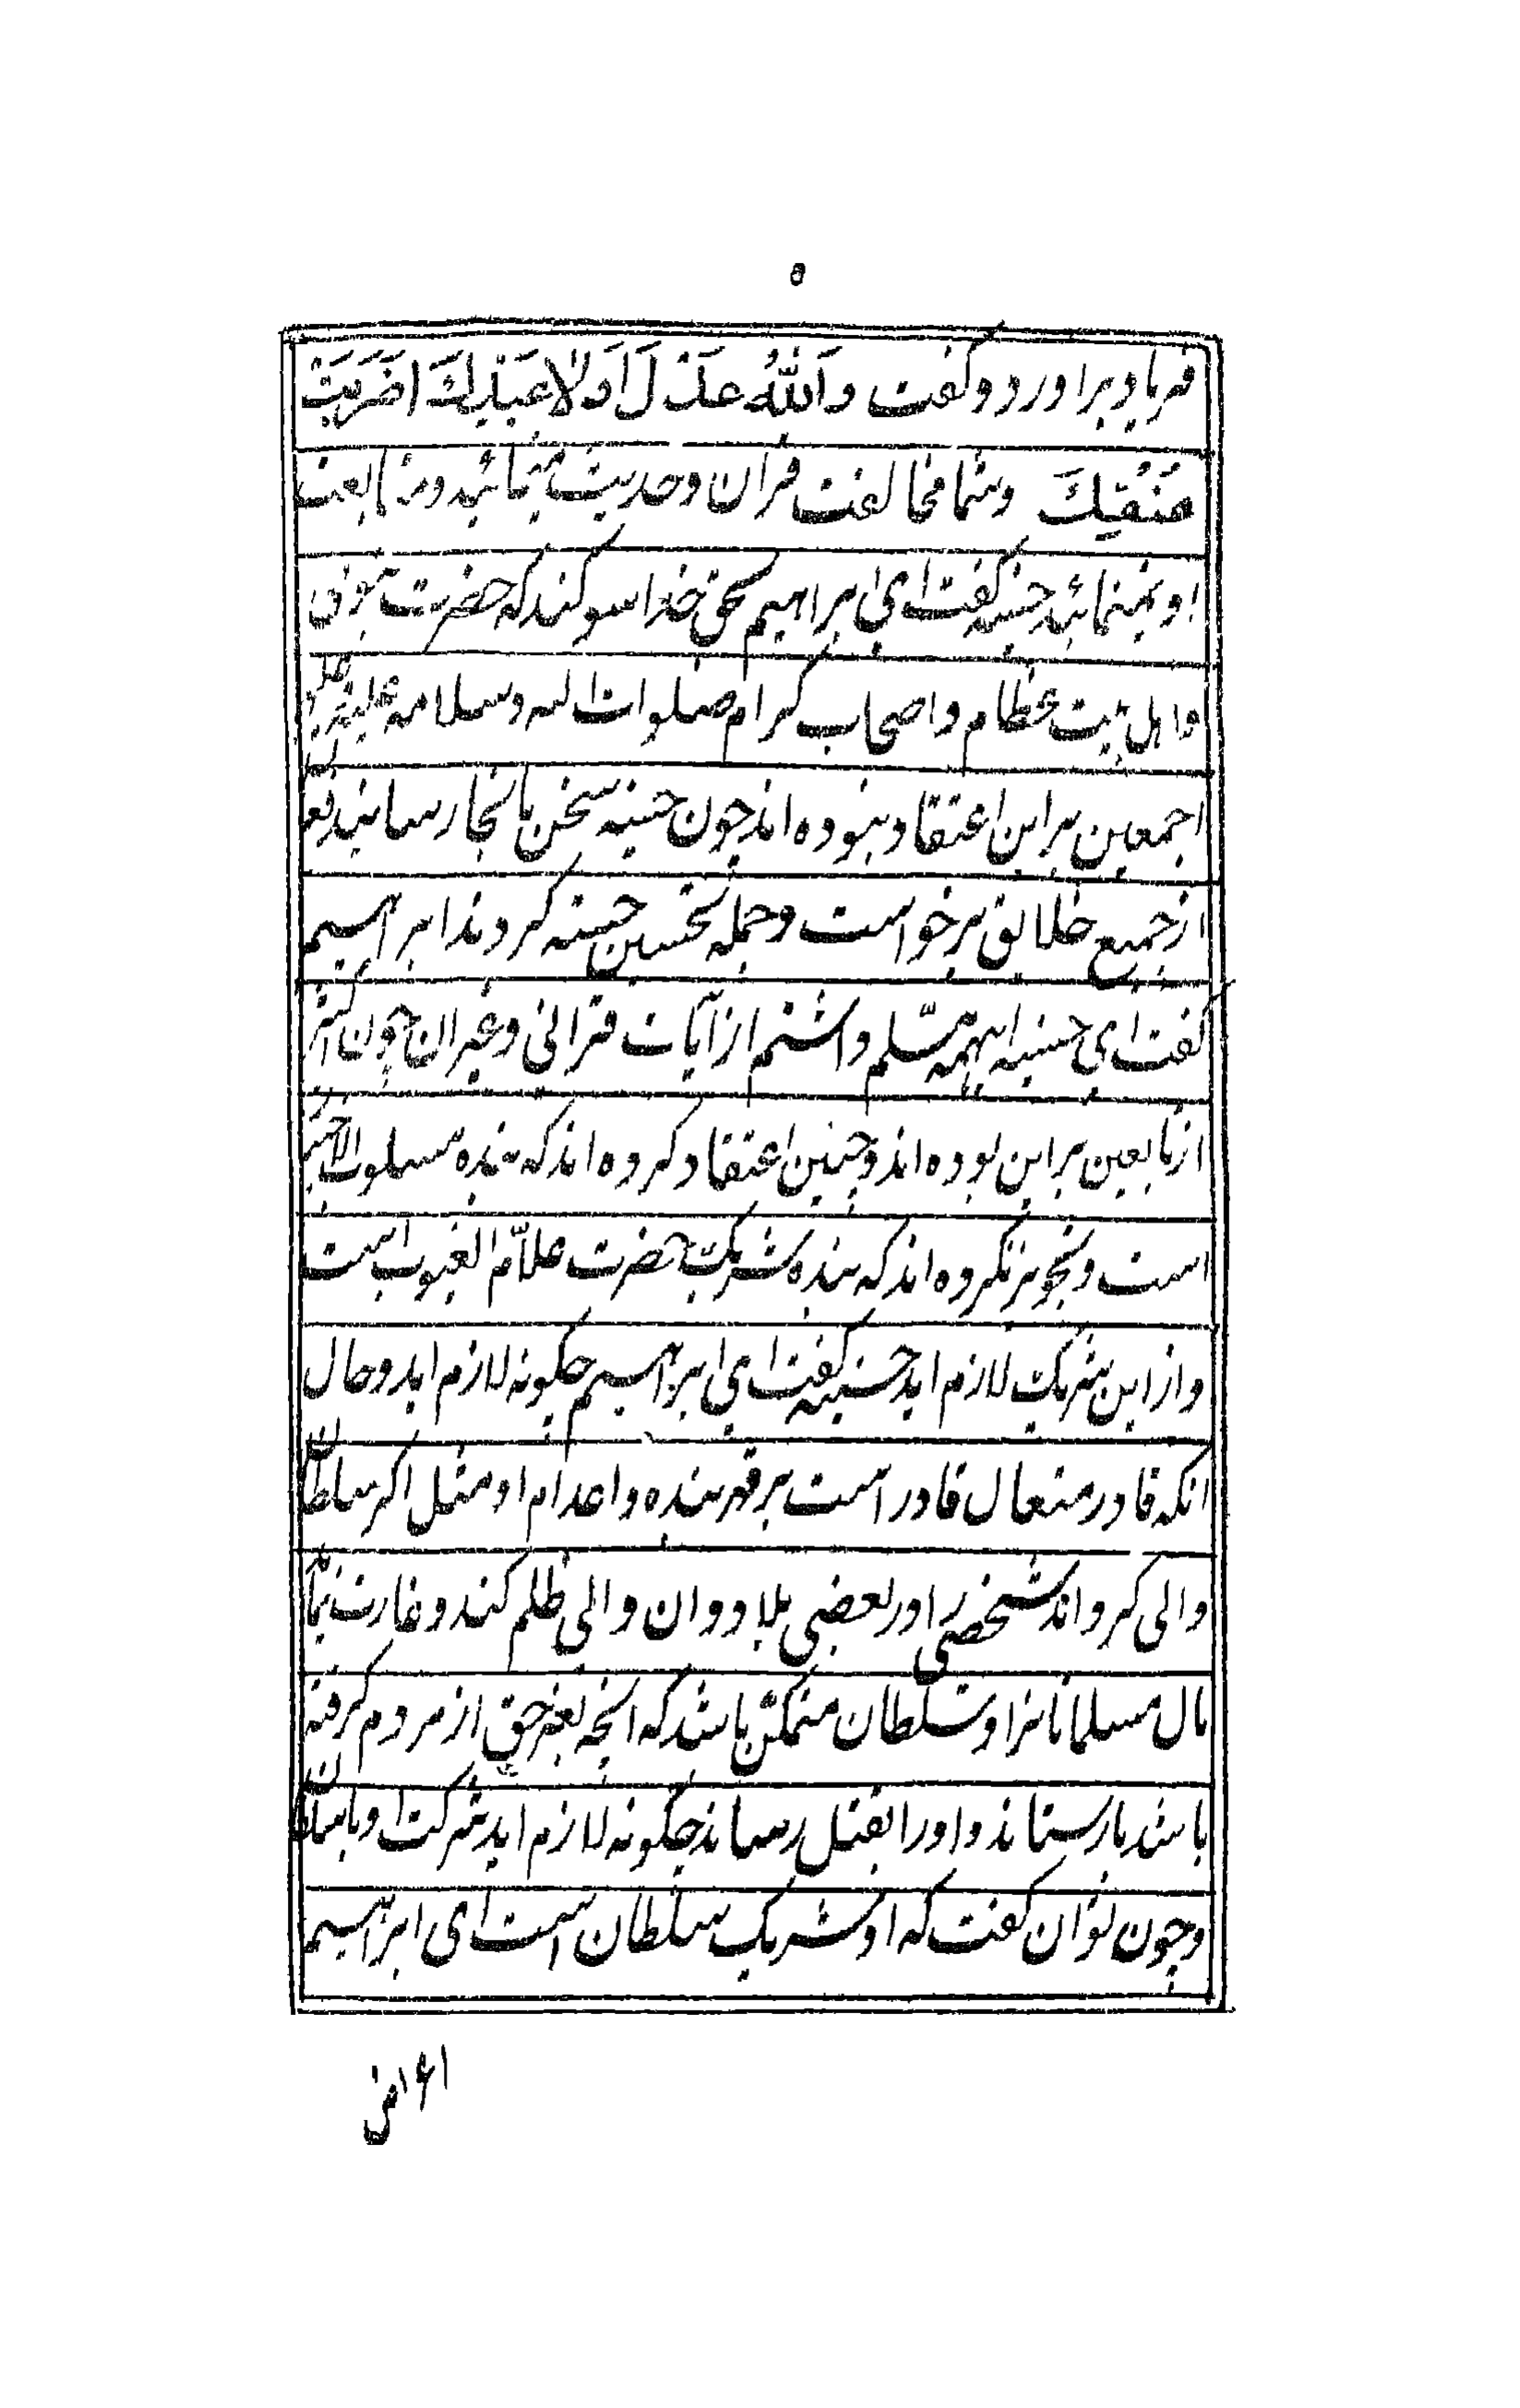 ٥
فریاد برآورد و گفت وَاللهُ عَدْلَ اَوَلا عَبْدِكَ اضَرَبَتْ
عُنُقِكَ و شما مخالفت قران و حدیث مینمائید و متابعت
او نمینمائید حسنیه گفت ای ابراهیم بحق خدا سوگند که حضرت نبوی
و اهل بیت عظام و اصحاب کرام صلوات الله و سلامه علیه و علیهم
اجمعین بر این اعتقاد بنوده اند چون حسنیه سخن بانجا رسانید
از جمیع خلایق برخواست و جمله تحسین حسنیه کردند ابراهیم
گفت ای حسنیه اینهمه مسلّم داشتم از آیات قرانی و غیران چون اکثر
از تابعین بر این بوده اند و چنین اعتقاد کرده اند که بنده مسلوب الاختیار
است و تجویز نکرده اند که بنده شریک حضرت علاّم الغیوب است
و از این شریک لازم اید حسنیه گفت ای ابراهیم چگونه لازم اید و حال
انکه قادر متعال قادر است بر قهر بنده و اعدام او مثل اگر سلطان
والی گرداند شخصی را در بعضی بلاد و ان والی ظلم کند و غارت نماید
مال مسلمانانرا و سلطان متمکن باشد که انچه بغیر حق از مردم گرفته
باشد بازستاند و او را بقتل رساند چگونه لازم اید شرکت او با سلطان
و چون توان گفت که او شریک سلطان است ای ابراهیم